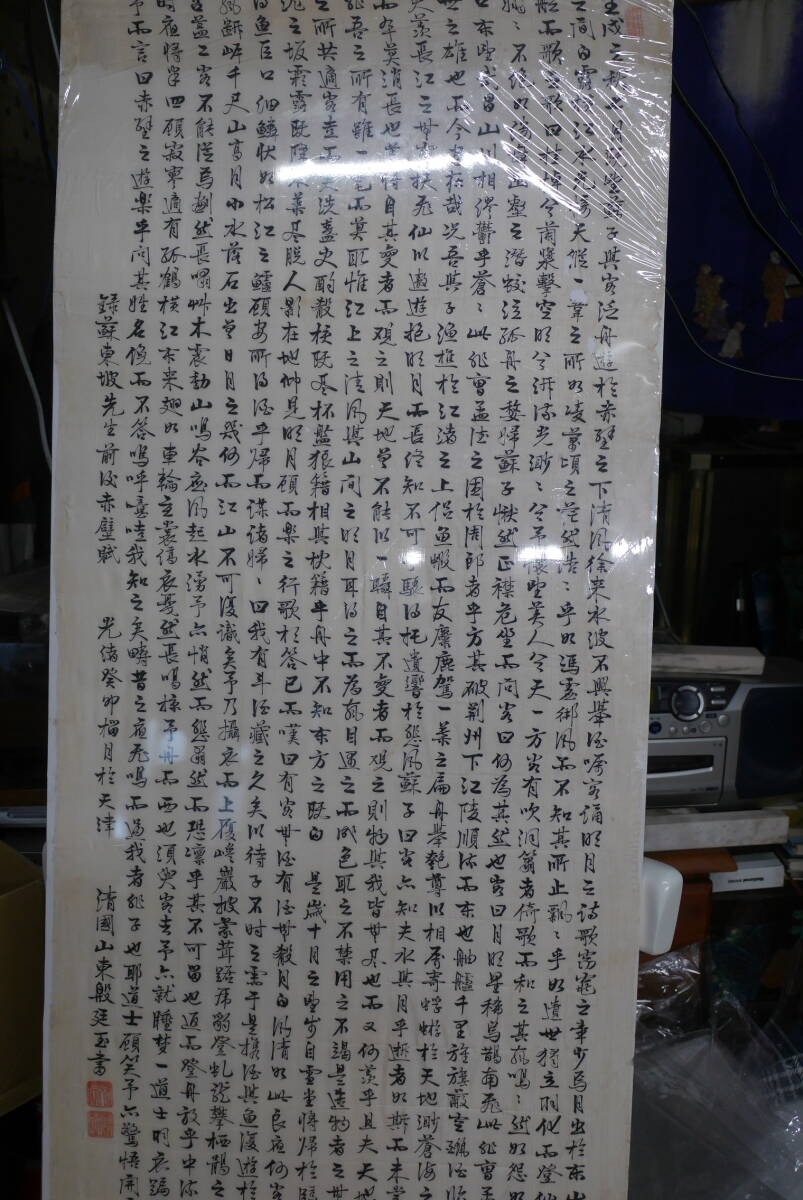 壬戌之秋七月既望蘇子與客泛舟遊於赤壁之下清風徐來水波不興舉酒囑客誦明月之詩歌窈窕之章少焉月出於東山
之間白露橫江水光接天縱一葦之所如凌萬頃之茫然浩〻乎如馮虛御風而不知其所止飄〻乎如遺世獨立羽化而登仙
舷而歌之歌曰桂棹兮蘭槳擊空明兮泝流光渺〻兮予懷望美人兮天一方客有吹洞簫者倚歌而和之其聲嗚〻然如怨如
嫋〻不絕如縷舞幽壑之潛蛟泣孤舟之嫠婦蘇子愀然正襟危坐而問客曰何為其然也客曰月明星稀烏鵲南飛此非曹孟
口東望武昌山川相繆鬱乎蒼〻此非曹孟德之困於周郎者乎方其破荊州下江陵順流而東也舳艫千里旌旗蔽空釃酒臨
世之雄也而今安在哉況吾與子漁樵於江渚之上侶魚蝦而友麋鹿駕一葉之扁舟舉匏尊以相屬寄蜉蝣於天地渺蒼海之
羨長江之無窮挾飛仙以遨遊抱明月而長終知不可乎驟得托遺響於悲風蘇子曰客亦知夫水與月乎逝者如斯而未嘗
而卒莫消長也蓋將自其變者而觀之則天地曾不能以一瞬自其不變者而觀之則物與我皆無盡也而又何羨乎且夫天地
非吾之所有雖一毫而莫取惟江上之清風與山間之明月耳得之而為聲目遇之而成色取之不禁用之不竭是造物者之無
之所共適客喜而笑洗盞更酌殽核既盡杯盤狼籍相與枕籍乎舟中不知東方之既白 是歲十月之望步自雪堂將歸於臨
泥之坂霜露既降木葉盡脫人影在地仰見明月顧而樂之行歌相答已而嘆曰有客無酒有酒無殽月白風清如此良夜何客
得魚巨口細鱗狀如松江之鱸顧安所得酒乎歸而謀諸婦〻曰我有斗酒藏之久矣以待子不時之需于是攜酒與魚復遊於
聲斷岸千尺山高月小水落石出曾日月之幾何而江山不可復識矣予乃攝衣而上履巉巖披蒙茸踞虎豹登虬龍攀栖鶻之
宮蓋二客不能從焉劃然長嘯艸木震動山鳴谷應風起水湧予亦悄然而悲肅然而恐凜乎其不可留也返而登舟放乎中流
時夜將半四顧寂寥適有孤鶴橫江東來翅如車輪玄裳縞衣戛然長鳴掠予舟而西也須臾客去予亦就睡夢一道士羽衣蹁
予而言曰赤壁之遊樂乎問其姓名俛而不答嗚呼噫嘻我知之矣疇昔之夜飛鳴而過我者非子也耶道士顧笑予亦驚悟開
錄蘇東坡先生前後赤壁賦 光緒癸卯榴月於天津 清國山東殷廷玉書